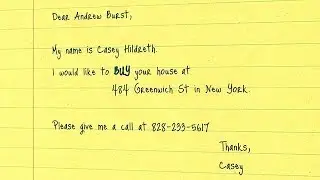 Dear Andrew Burst,
My name is Casey Hildreth.
I would like to BUY your house at
484 Greenwich St in New York.
Please give me a call at 828-233-5617
Thanks,
Casey